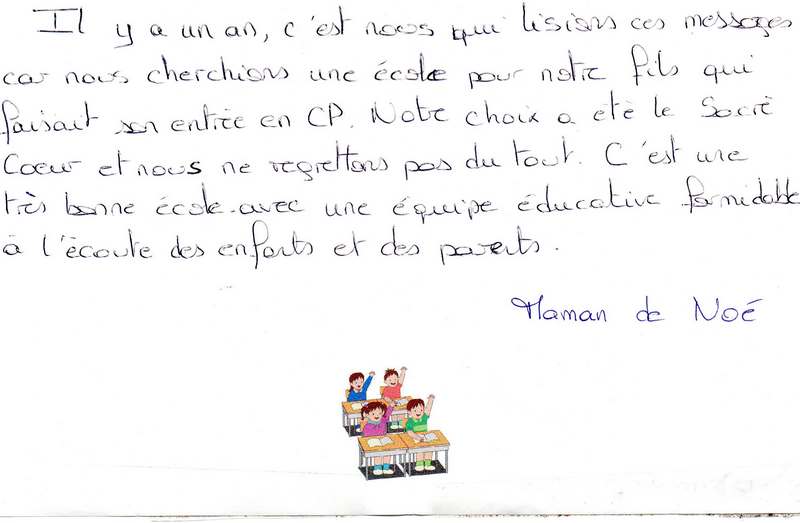 Il y a un an, c'est nous qui lisions ces messages
car nous cherchions une école pour notre fils qui
faisait son entrée en CP. Notre choix a été le Sacré
Coeur et nous ne regrettons pas du tout. C'est une
très bonne école avec une équipe éducative formidable
à l'écoute des enfants et des parents.
Maman de Noé